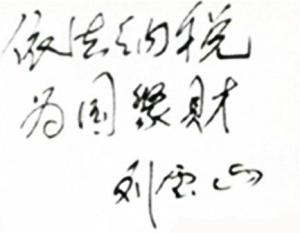 依法纳税
为国聚財
刘云山